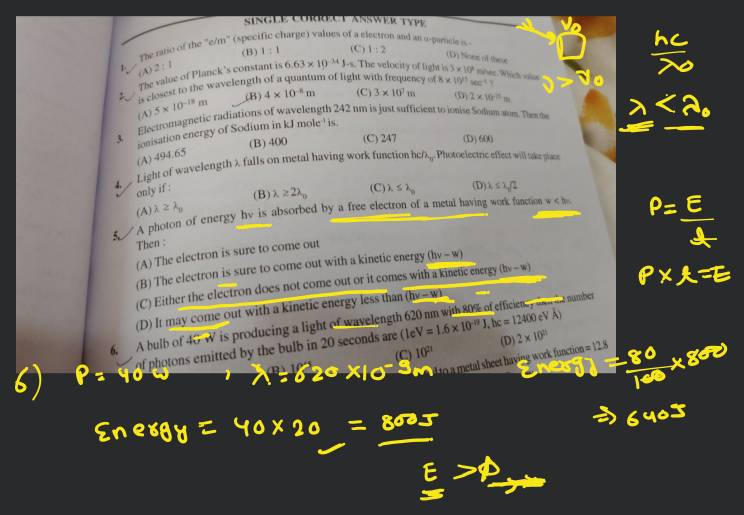 SINGLE CORRECT ANSWER TYPE
1. The ratio of the "e/m" (specific charge) values of a electron and an α-particle is -
(A) 2 : 1 (B) 1 : 1 (C) 1 : 2 (D) None of these
2. The value of Planck's constant is 6.63 × 10⁻³⁴ J-s. The velocity of light is 3 × 10⁸ m/sec. Which value
is closest to the wavelength of a quantum of light with frequency of 8 × 10¹⁵ sec⁻¹
(A) 5 × 10⁻¹⁸ m (B) 4 × 10⁻⁸ m (C) 3 × 10⁷ m (D) 2 × 10⁻²⁵ m
3. Electromagnetic radiations of wavelength 242 nm is just sufficient to ionise Sodium atom. Then the
ionisation energy of Sodium in kJ mole⁻¹ is.
(A) 494.65 (B) 400 (C) 247 (D) 600
4. Light of wavelength λ falls on metal having work function hc/λ₀. Photoelectric effect will take place
only if :
(A) λ ≥ λ₀ (B) λ ≥ 2λ₀ (C) λ ≤ λ₀ (D) λ ≤ λ₀/2
5. A photon of energy hν is absorbed by a free electron of a metal having work function w < hν.
Then :
(A) The electron is sure to come out
(B) The electron is sure to come out with a kinetic energy (hν – w)
(C) Either the electron does not come out or it comes with a kinetic energy (hν – w)
(D) It may come out with a kinetic energy less than (hν – w)
6. A bulb of 40 W is producing a light of wavelength 620 nm with 80% of efficiency then the number
of photons emitted by the bulb in 20 seconds are (1eV = 1.6 × 10⁻¹⁹ J, hc = 12400 eV Å)
(C) 10²¹ (D) 2 × 10²¹
to a metal sheet having work function = 12.8
ν₀
ν > ν₀
hc
λ₀
λ < λ₀
P = E
t
P × t = E
6) P = 40 w , λ = 620 × 10⁻⁹ m
Energy = 80 × 800
100
Energy = 40 × 20 = 800J
⇒ 640J
E > Φ